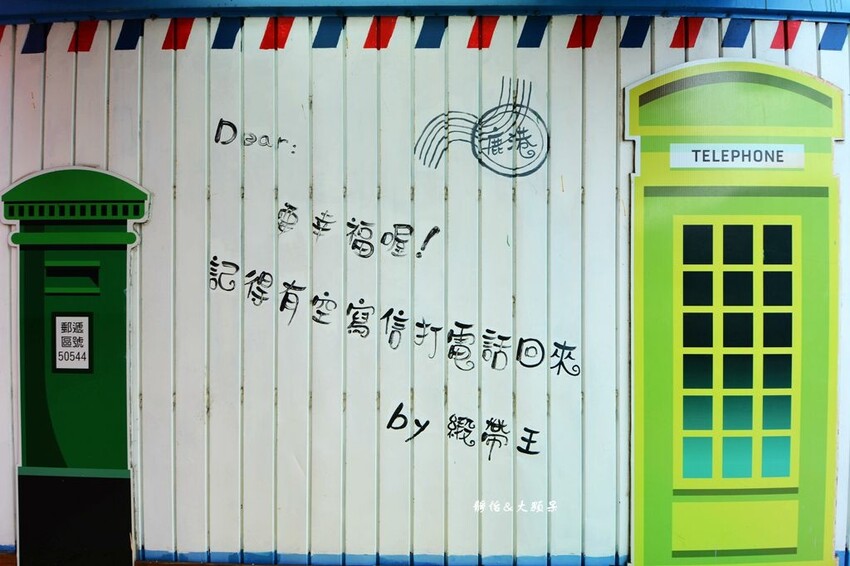 Dear:
鹿港
TELEPHONE
要幸福喔!
記得有空寫信打電話回來
郵遞
區號
50544
by 緞帶王